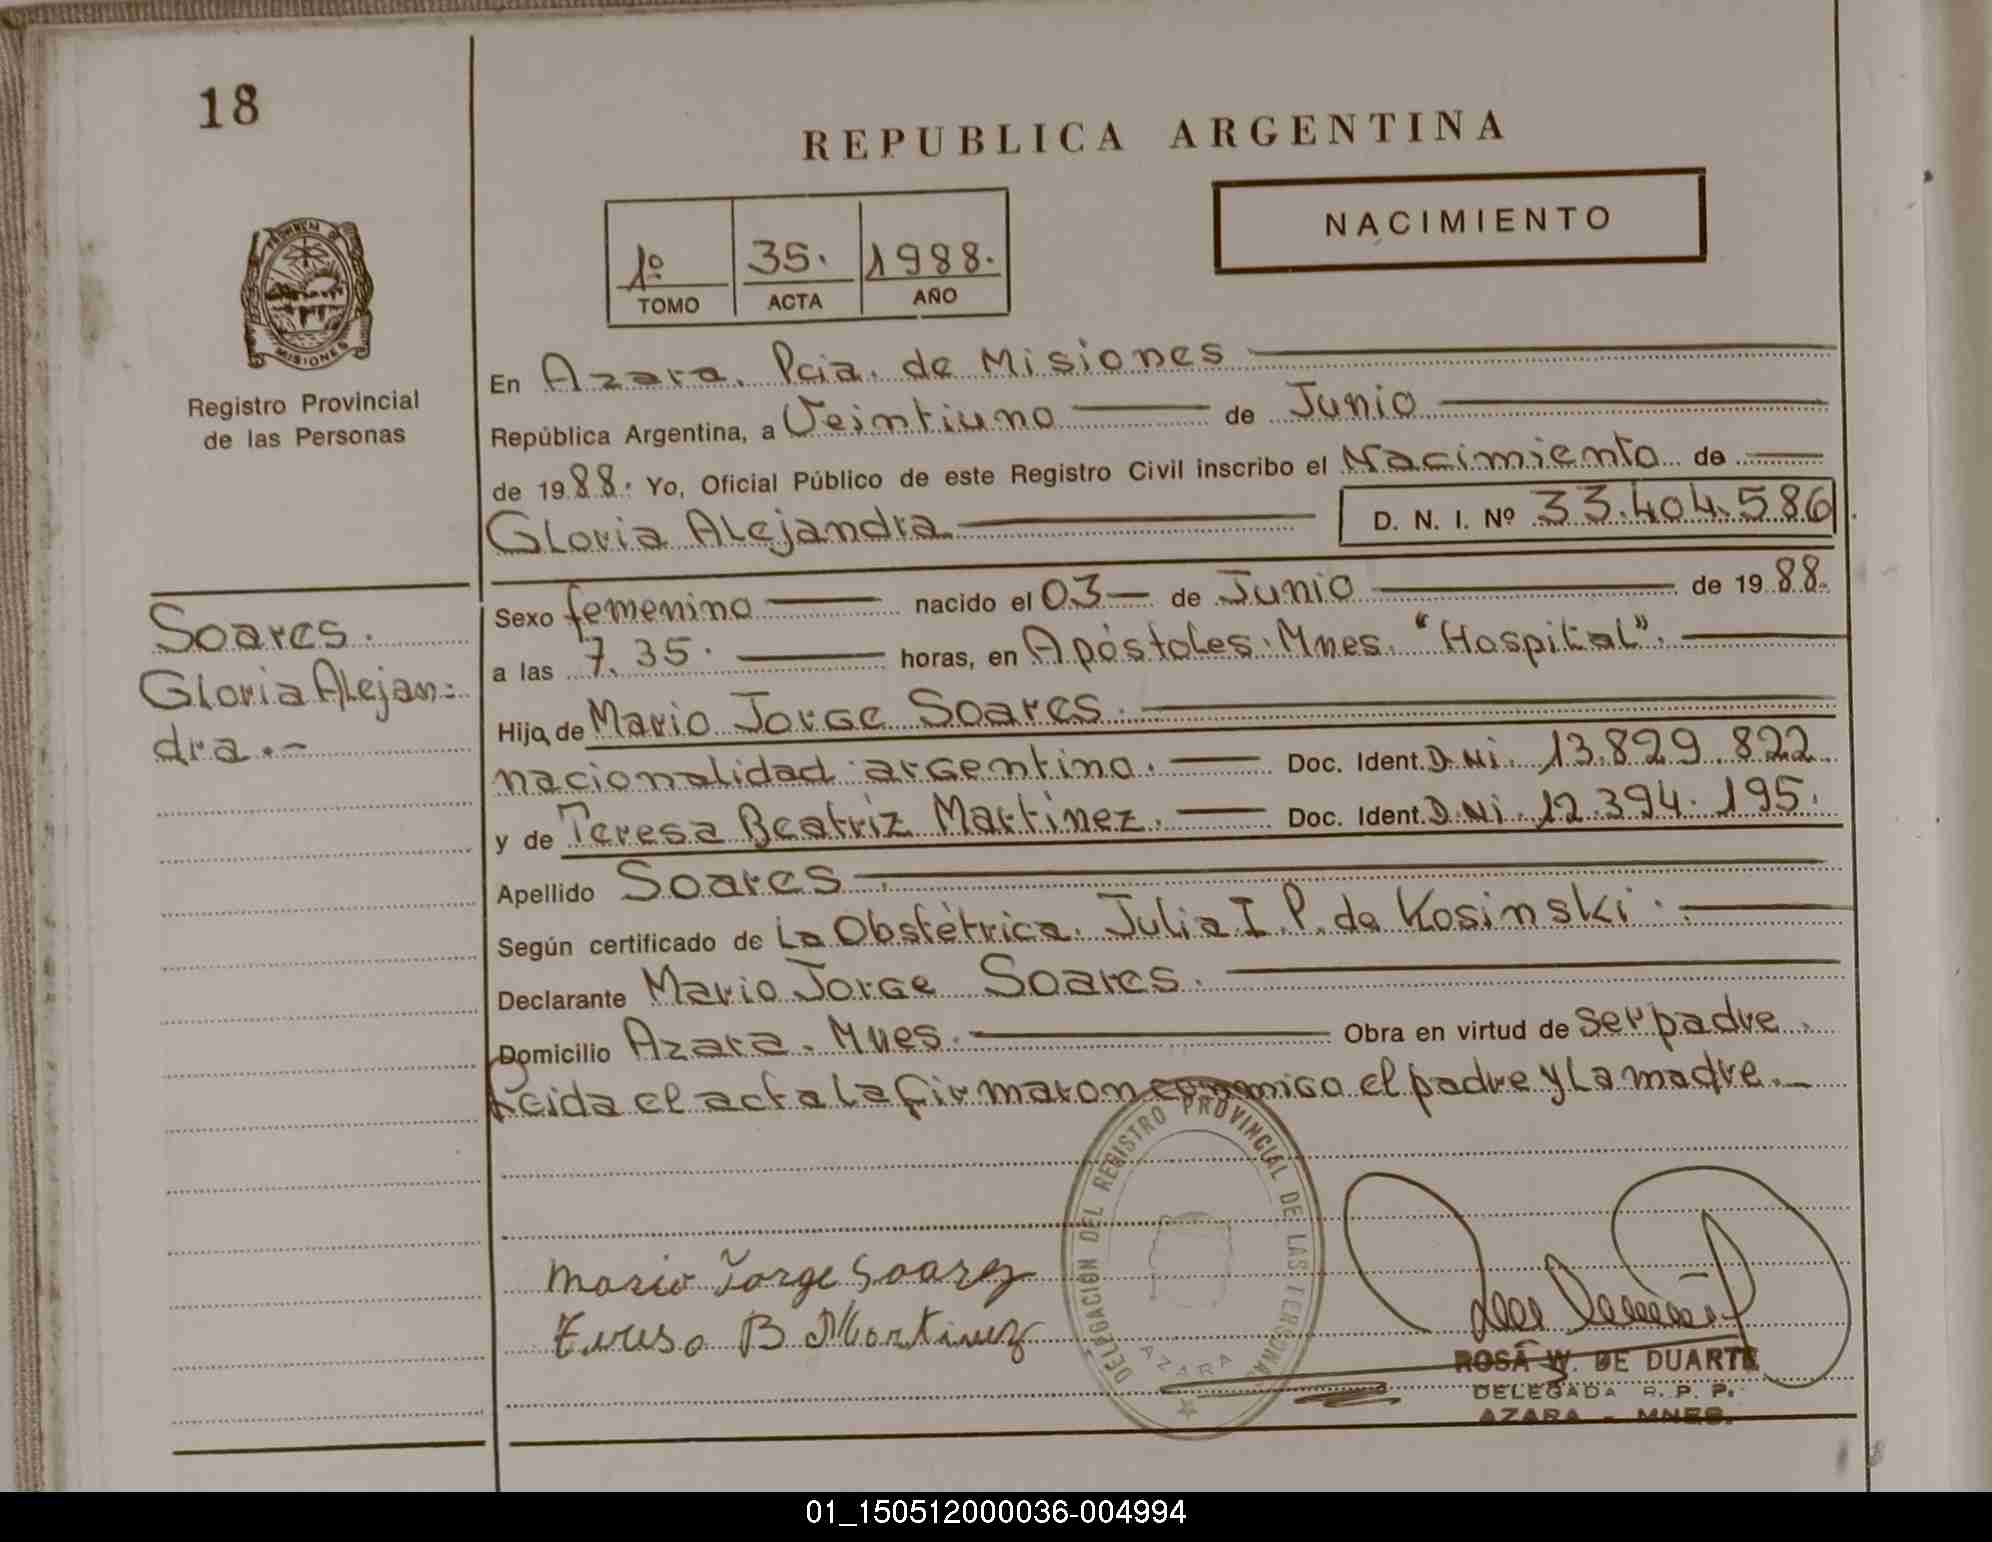 18
REPUBLICA ARGENTINA
NACIMIENTO
1º 35. 1988.
TOMO ACTA AÑO
PROVINCIA DE
MISIONES
Registro Provincial
de las Personas
En Azara. Pcia. de Misiones
República Argentina, a Veintiuno de Junio
de 1988. Yo, Oficial Público de este Registro Civil inscribo el Nacimiento de
Gloria Alejandra D. N. I. Nº 33.404.586
Soares.
Gloria Alejan=
dra.-
Sexo femenino nacido el 03 de Junio de 1988.
a las 7.35. horas, en Apóstoles. Mnes. "Hospital".
Hija de Mario Jorge Soares.
nacionalidad argentina. Doc. Ident. D.Ni. 13.829.822
y de Teresa Beatriz Martinez. Doc. Ident. D.Ni. 12.394.195.
Apellido Soares
Según certificado de La Obstètrica. Julia I. P. de Kosinski.
Declarante Mario Jorge Soares.
Domicilio Azara. Mnes. Obra en virtud de ser padre.
Leida el acta la firmaron conmigo el padre y la madre.
DELEGACIÓN DEL REGISTRO PROVINCIAL DE LAS PERSONAS
AZARA
Mario Jorge Soarez
Teresa B Martinez
ROSA W. DE DUARTE
DELEGADA R. P. P.
AZARA - MNES.
01_150512000036-004994